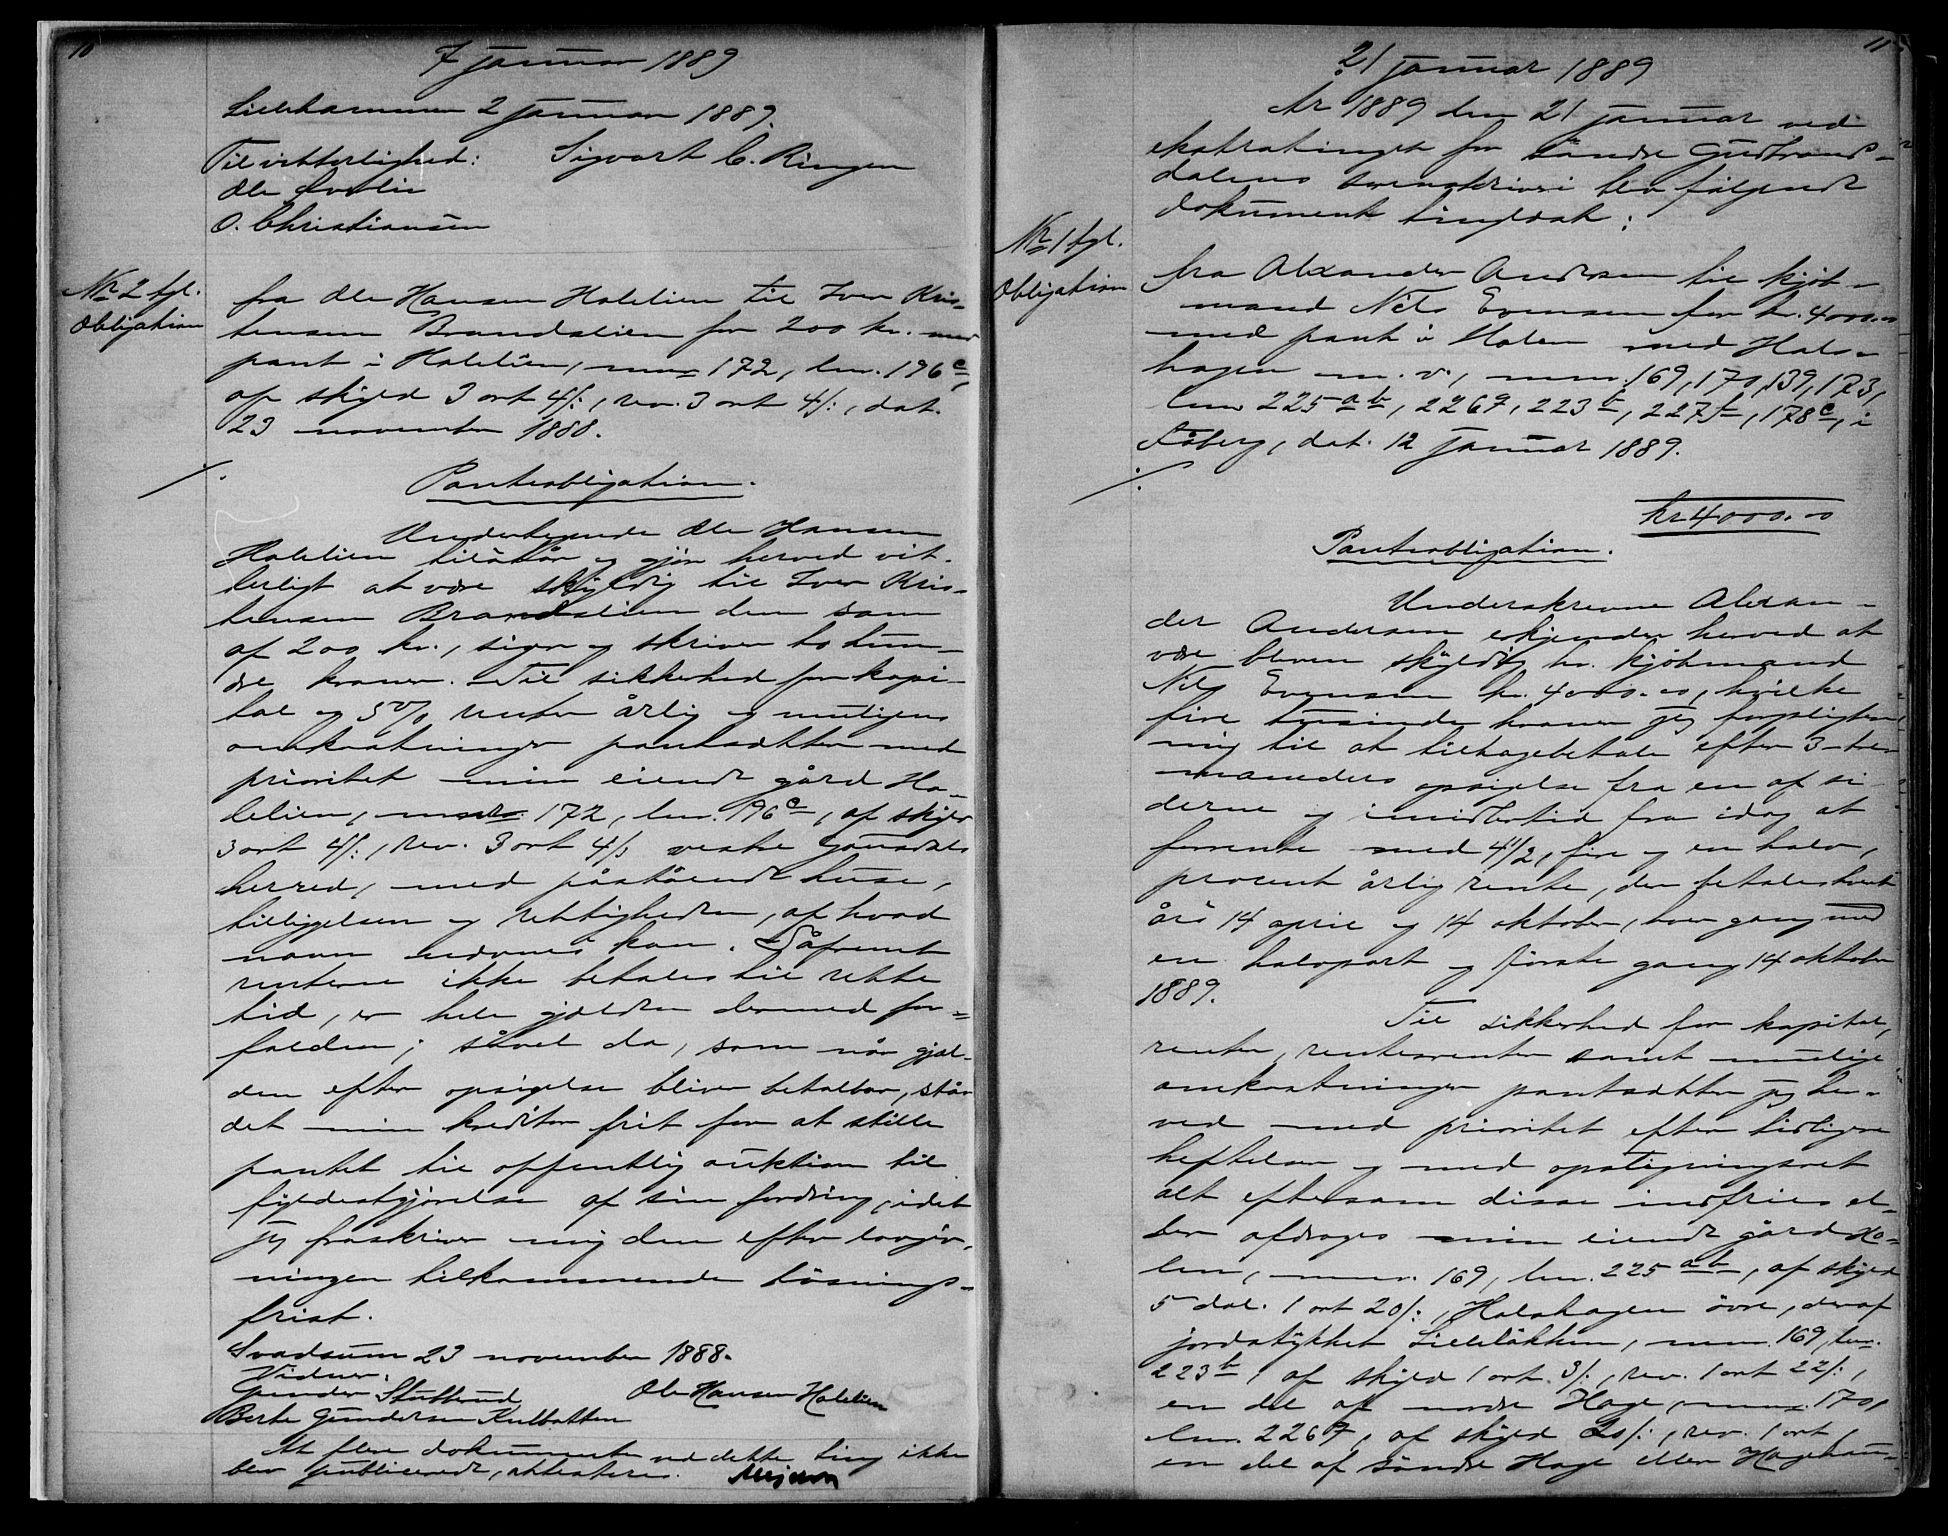 10
7 januar 1889
Lillehammer 2 januar 1889.
Til vitterlighed: Sigvart C. Ringen
Ole
O. Christiansen
No 2 tgl.
Obligation
fra Ole Hansen Holelien til Iver Kris-
tensen Brandslien for 200 kr. med
pant i Holelien, mnr 172, lnr. 196c,
af skyld 3 ort 4 /:, rev. 3 ort 4 /:, dat.
23 november 1888.
Panteobligation.
Undertegnede Ole Hansen
Holelien tilstår og gjør herved vit-
terligt at være skyldig til Iver Kris-
tensen Brandslien den sum
af 200 kr., siger og skriver to hun-
dre kroner. Til sikkerhed for kapi-
tal og 5 % renter årlig og muligens
omkostninger pantsætter med
prioritet min eiende gård Ho-
lelien, mnr. 172, lnr. 196c, af skyld
3 ort 4 /:, rev. 3 ort 4 /: vestre Gausdals
herred, med påstående huse,
tilliggelser og rettigheder, af hvad
navn nævnes kan. Såfremt
renterne ikke betales til rette
tid, er hele gjælden dermed for-
falden; såvel da, som når gjæl-
den efter opsigelse bliver betalbar, står
det min kreditor frit for at stille
pantet til offentlig auktion til
fyldestgjørelse af sin fordring, idet
jeg fraskriver mig den efter lovgiv-
ningen tilkommende løsnings-
frist.
Svadsum 23 november 1888.
Vidner.
Gunder Stubberud Ole Hansen Holelien
Berte Gundersen
At flere dokumenter ved dette ting ikke
blev publicerede, attesteres.
11
21 januar 1889
År 1889 den 21 januar ved
ekstratinget for søndre Gudbrands-
dalens sorenskriveri blev følgende
dokument tinglæst:
No 1 tgl.
Obligation
fra Alexander Andersen til kjøb-
mand Nils Evensen for kr. 4000.00
med pant i Holen med Hols-
hagen m. v., mnr. 169, 170, 139, 173,
lnr 225ab, 226g, 223b, 227b, 178c, i
Fåberg, dat. 12 januar 1889.
kr 4000.00
Panteobligation.
Underskrevne Alexan-
der Andersen erkjender herved at
være bleven skyldig hr. kjøbmand
Nils Evensen kr. 4000.00, hvilke
fire tusinde kroner jeg forpligter
mig til at tilbagebetale efter 3 - tre
maaneders opsigelse fra en af si-
derne og imidlertid fra idag at
forrente med 4 1/2, fire og en halv,
procent årlig rente, der betales hvert
års 14 april og 14 oktober, hver gang med
en halvpart og første gang 14 oktober
1889.
Til sikkerhed for kapital,
renter, rentesrenter samt mulige
omkostninger pantsætter jeg her-
ved med prioritet efter tidligere
heftelser og med opstigningsret
alt eftersom disse indfries el-
ler afdrages min eiende gård Ho-
len, mnr. 169, lnr. 225 ab, af skyld
5 dal. 1 ort 20 /:, Holshagen øvre, deraf
jordstykket Lilleløkken, mnr. 169, lnr.
223b, af skyld 1 ort 3 /:, rev. 1 ort 22 /:,
en del af nordre Hage, mnr. 170,
lnr. 226g, af skyld 20 /:, rev. 1 ort,
en del af søndre Hage eller